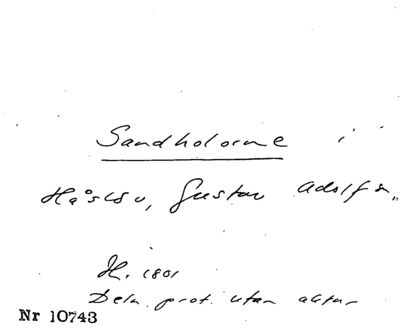 Sandholorne i
Håslöv, Gustav Adolfs,
H. 1801
Deln. prot. utan aktnr
Nr 10743